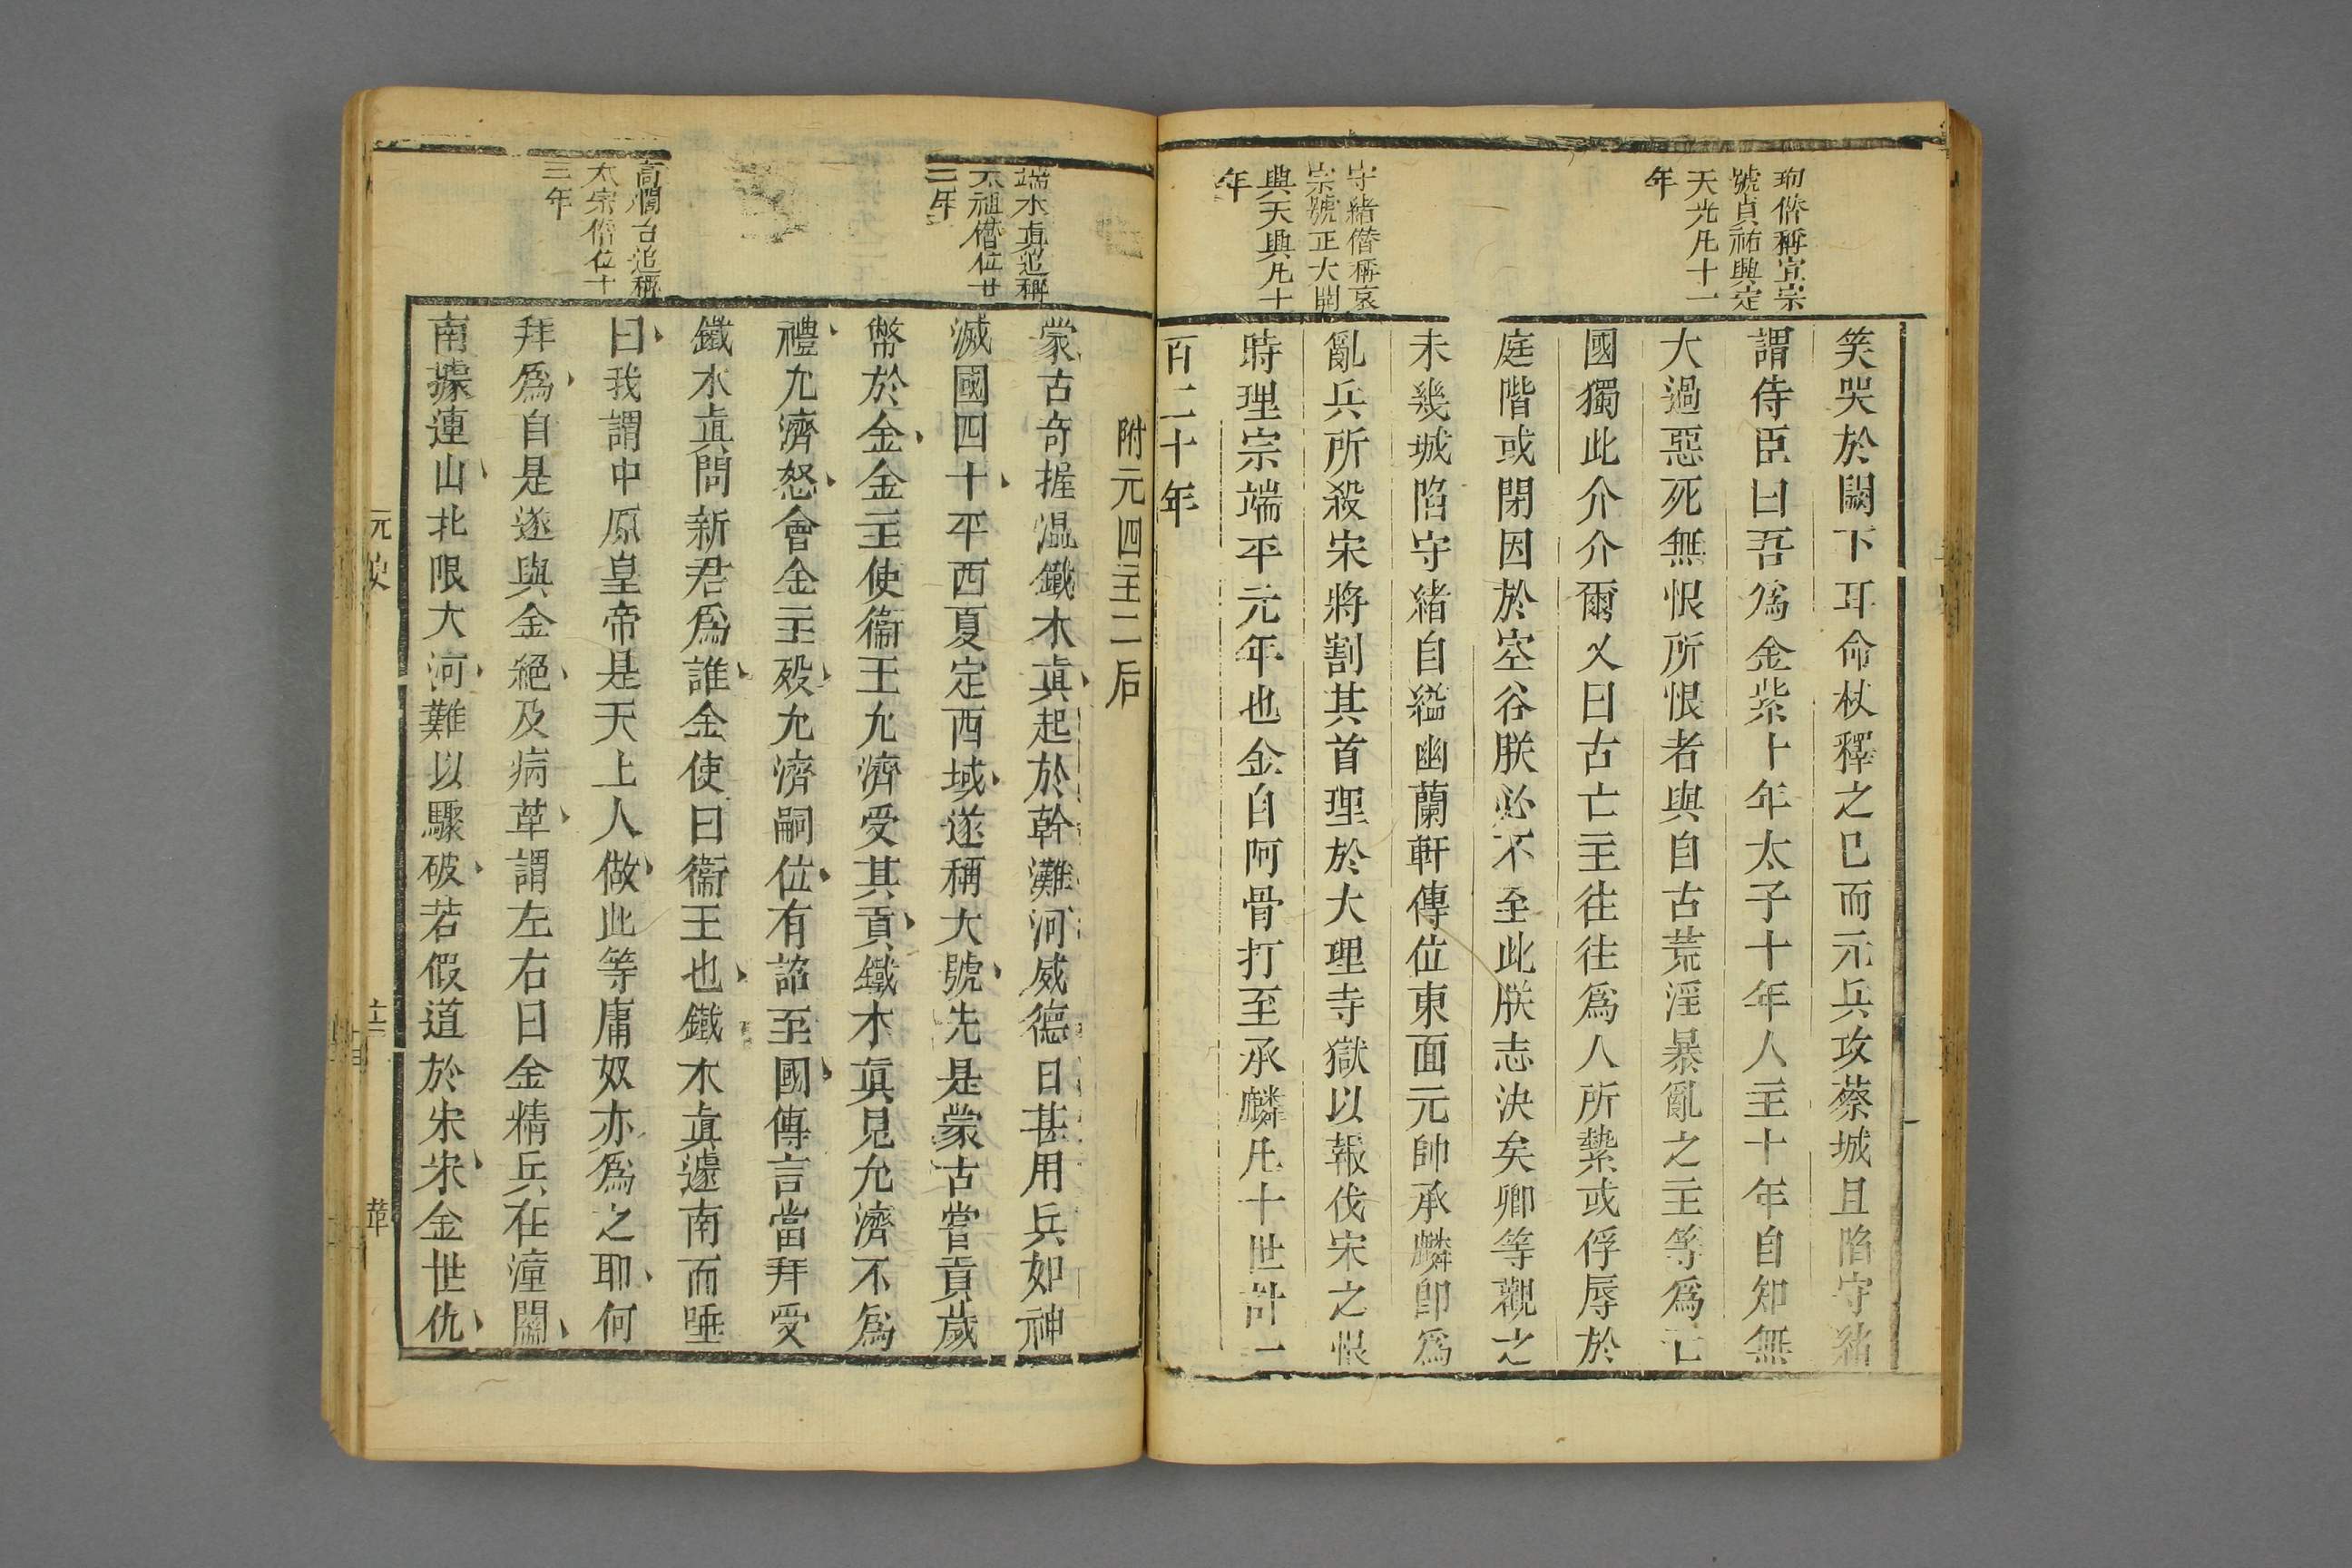 珣僭稱宣宗
號貞祐興定
天光凡十一
年
守緒僭稱哀
宗號正大開
興天興凡十
年
笑哭於闕下耳命杖釋之已而元兵攻蔡城且陷守緒
謂侍臣曰吾爲金紫十年太子十年人主十年自知無
大過惡死無恨所恨者與自古荒淫暴亂之主等爲亡
國獨此介介爾又曰古亡主往往爲人所縶或俘辱於
庭階或閉因於空谷朕必不至此朕志決矣卿等觀之
未幾城陷守緒自縊幽蘭軒傳位東面元帥承麟卽爲
亂兵所殺宋將割其首理於大理寺獄以報伐宋之恨
時理宗端平元年也金自阿骨打至承麟凡十世計一
百二十年
端木真追稱
太祖僭位廿
二年
高闊台追稱
太宗僭位十
三年
附元四主二后
蒙古奇握温鐵木真起於幹灘河威德日甚用兵如神
滅國四十平西夏定西域遂稱大號先是蒙古嘗貢歲
幣於金金主使衞王允濟受其貢鐵木真見允濟不爲
禮允濟怒會金主殁允濟嗣位有詔至國傳言當拜受
鐵木真問新君爲誰金使曰衞王也鐵木真遽南而唾
曰我謂中原皇帝是天上人做此等庸奴亦爲之耶何
拜爲自是遂與金絕及病革謂左右曰金精兵在潼關
南據連山北限大河難以驟破若假道於宋宋金世仇
元史
十三